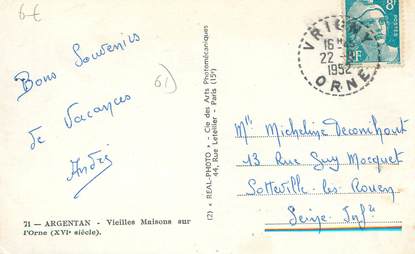 6€
8F
POSTES
VRIGNY
16H
22 -
1952
ORNE
Bons Souvenirs
de Vacances
André
6)
(2) « REAL-PHOTO » - Cie des Arts Photomécaniques
44, Rue Letellier - Paris (15e)
Mlle Micheline Decomhout
13 Rue Guy Mocquet
Sotteville-les-Rouen
Seine Infre
71 — ARGENTAN - Vieilles Maisons sur
l'Orne (XVIe siècle).